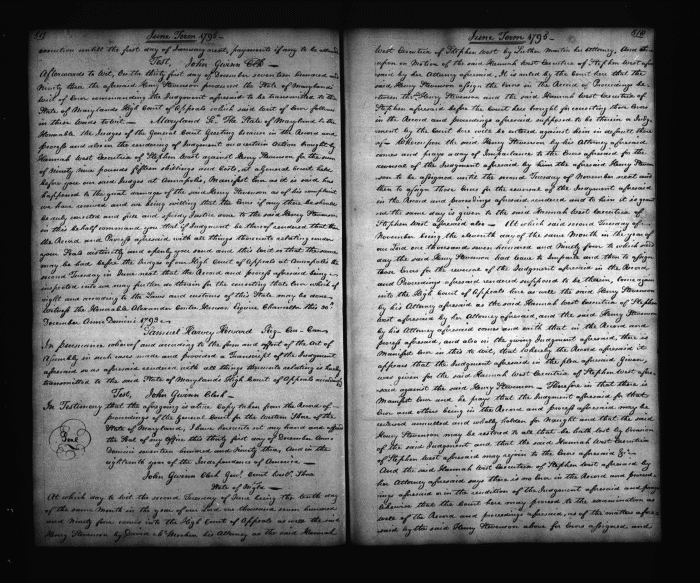 June Term 1795
execution untill the first day of January next, payments if any to be
Test, John Gwinn Clk
Afterwards to wit, On the thirty first day of December seventeen hundred and
Ninety three the aforesaid Henry Stevenson produced the State of Maryland's
Writ of Error commanding the Judgment aforesaid to be transmitted to the
State of Maryland's High Court of Appeals which said writ of Error follows
in these words to wit. Maryland Sc. The State of Maryland to the
Honorable the Judges of the General Court Greeting because in the Record and
process and also in the rendering of Judgment on a certain Action brought by
Hannah West Executrix of Stephen West against Henry Stevenson for the sum
of Ninety nine pounds fifteen shillings and Costs, at a general Court held
before you our said Judges at Annapolis, Manifest Error as it is said hath
happened to the great damage of the said Henry Stevenson as of his complaint
we have received and we being willing that the Error if any there be should
be duly corrected and full and speedy Justice done to the said Henry Stevenson
in this behalf command you that if Judgment be thereof rendered that then
the Record and Process aforesaid with all things thereunto relating under
your Seals distinctly and openly you send and this writ so that the same
may be had before the Judges of our High Court of Appeals at Annapolis the
second Tuesday in June next that the Record and process aforesaid being
inspected into we may further do therein for the correcting that Error which of
right and according to the Laws and customs of this State may be done
Witness the Honorable Alexander Contee Hanson Esquire Chancellor this 30th
December Anno Domini 1793.
Samuel Harvey Howard Reg. Cur. Can.
In pursuance whereof and according to the form and effect of the Act of
Assembly in such cases made and provided a Transcript of the Judgment
aforesaid so as aforesaid rendered with all things thereunto relating is hereby
transmitted to the said State of Maryland's High Court of Appeals
Test, John Gwinn Clk
In Testimony that the aforegoing is a true Copy taken from the Record of
proceedings of the General Court for the western Shore of the
State of Maryland, I have hereunto set my hand and affixed
Seal
the Seal of my Office this thirty first day of December Anno
Domini seventeen hundred and Ninety three, and in the
eighteenth year of the Independence of America
John Gwinn Clk Genl. Court West. Shore
State of Maryland
At which day to wit the second Tuesday of June being the tenth day
of the same Month in the year of our Lord one thousand seven hundred
and Ninety four comes into the High Court of Appeals as well the said
Henry Stevenson by David McMechen his Attorney as the said Hannah
June Term 1795
West Executrix of Stephen West by Luther Martin her Attorney. And
upon on Motion of the said Hannah West Executrix of Stephen West
said by her Attorney aforesaid, It is ruled by the Court here that the
said Henry Stevenson assign the Errors in the Record and Proceedings
between the said Henry Stevenson and the said Hannah West Executrix of
Stephen aforesaid before the Court here brought for correcting these Errors
in the Record and proceedings aforesaid supposed to be therein or Judg-
ment by the Court here will be entered against him in default there
of. Whereupon the said Henry Stevenson by his Attorney aforesaid
comes and prays a day of Imparlance to the Errors aforesaid for the
reversal of the Judgment aforesaid by him the aforesaid Henry Steven
son to be assigned until the second Tuesday of November next and
then to assign those Errors for the reversal of the Judgment aforesaid
in the Record and proceedings aforesaid rendered and to him it is granted
the same day is given to the said Hannah West Executrix of
Stephen West aforesaid also. At which said second Tuesday of
November being the eleventh day of the same Month in the year of
our Lord one thousand seven hundred and Ninety four to which said
day the said Henry Stevenson had leave to Imparle and then to assign
those Errors for the reversal of the Judgment aforesaid in the Record
and Proceedings aforesaid rendered supposed to be therein, come again
into the High Court of Appeals here as well the said Henry Stevenson
by his Attorney aforesaid as the said Hannah West Executrix of Stephen
West aforesaid by her Attorney aforesaid, and the said Henry Stevenson
by his Attorney aforesaid comes and saith that in the Record and
process aforesaid, and also in the giving Judgment aforesaid, there is
Manifest Error in this to wit, that whereby the Record aforesaid it
appears that the Judgment aforesaid in the plea aforesaid given,
was given for the said Hannah West Executrix of Stephen West afore
said against the said Henry Stevenson. Therefore in that there is
Manifest Error and he prays that the Judgment aforesaid for that
Error and others being in the Record and process aforesaid may be
reversed annulled and wholly taken for Naught and that the said
Henry Stevenson may be restored to all that he hath lost by Occasion
of the said Judgment and that the said Hannah West Executrix
of Stephen West aforesaid may rejoin to the Errors aforesaid &c.
And the said Hannah West Executrix of Stephen West aforesaid by
her Attorney aforesaid says there is no Error in the Record and proceed
ings aforesaid or in the rendition of the Judgment aforesaid and prays
likewise that the Court here may proceed to the examination as
well of the Record and proceedings aforesaid, as of the matters afore
said by the said Henry Stevenson above for Errors assigned and